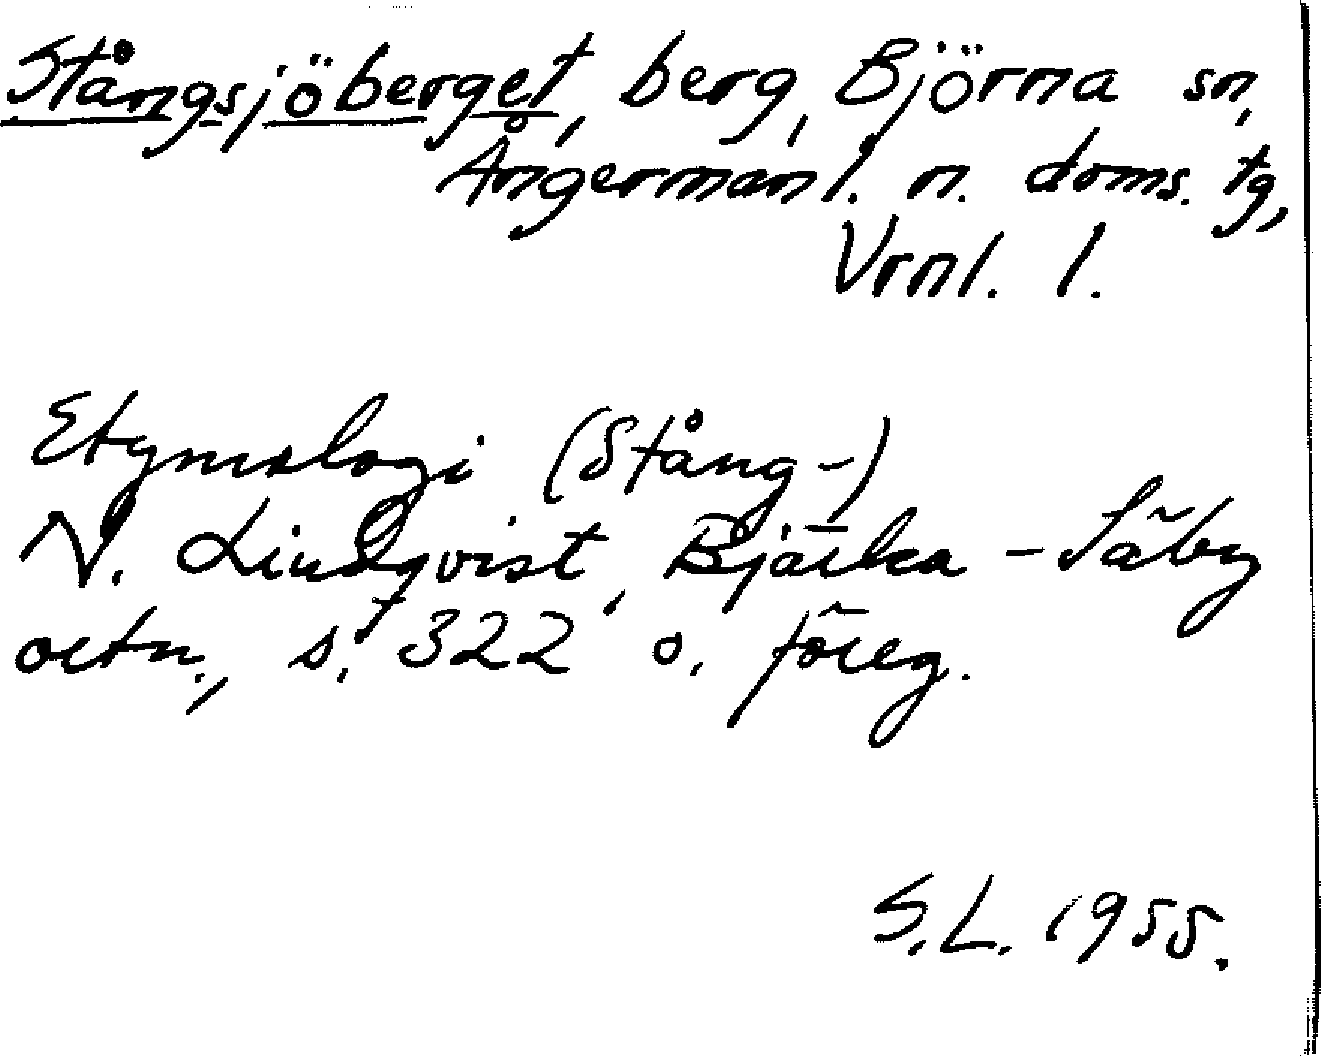 Stångsjöberget, berg, Björna sn,
Ångermanl. n. doms. tg,
Vrnl. l.
Etymologi (Stång-)
N. Lindqvist, Bjärka-Säby
ortn., s. 322 o. föreg.
S.L. 1955.